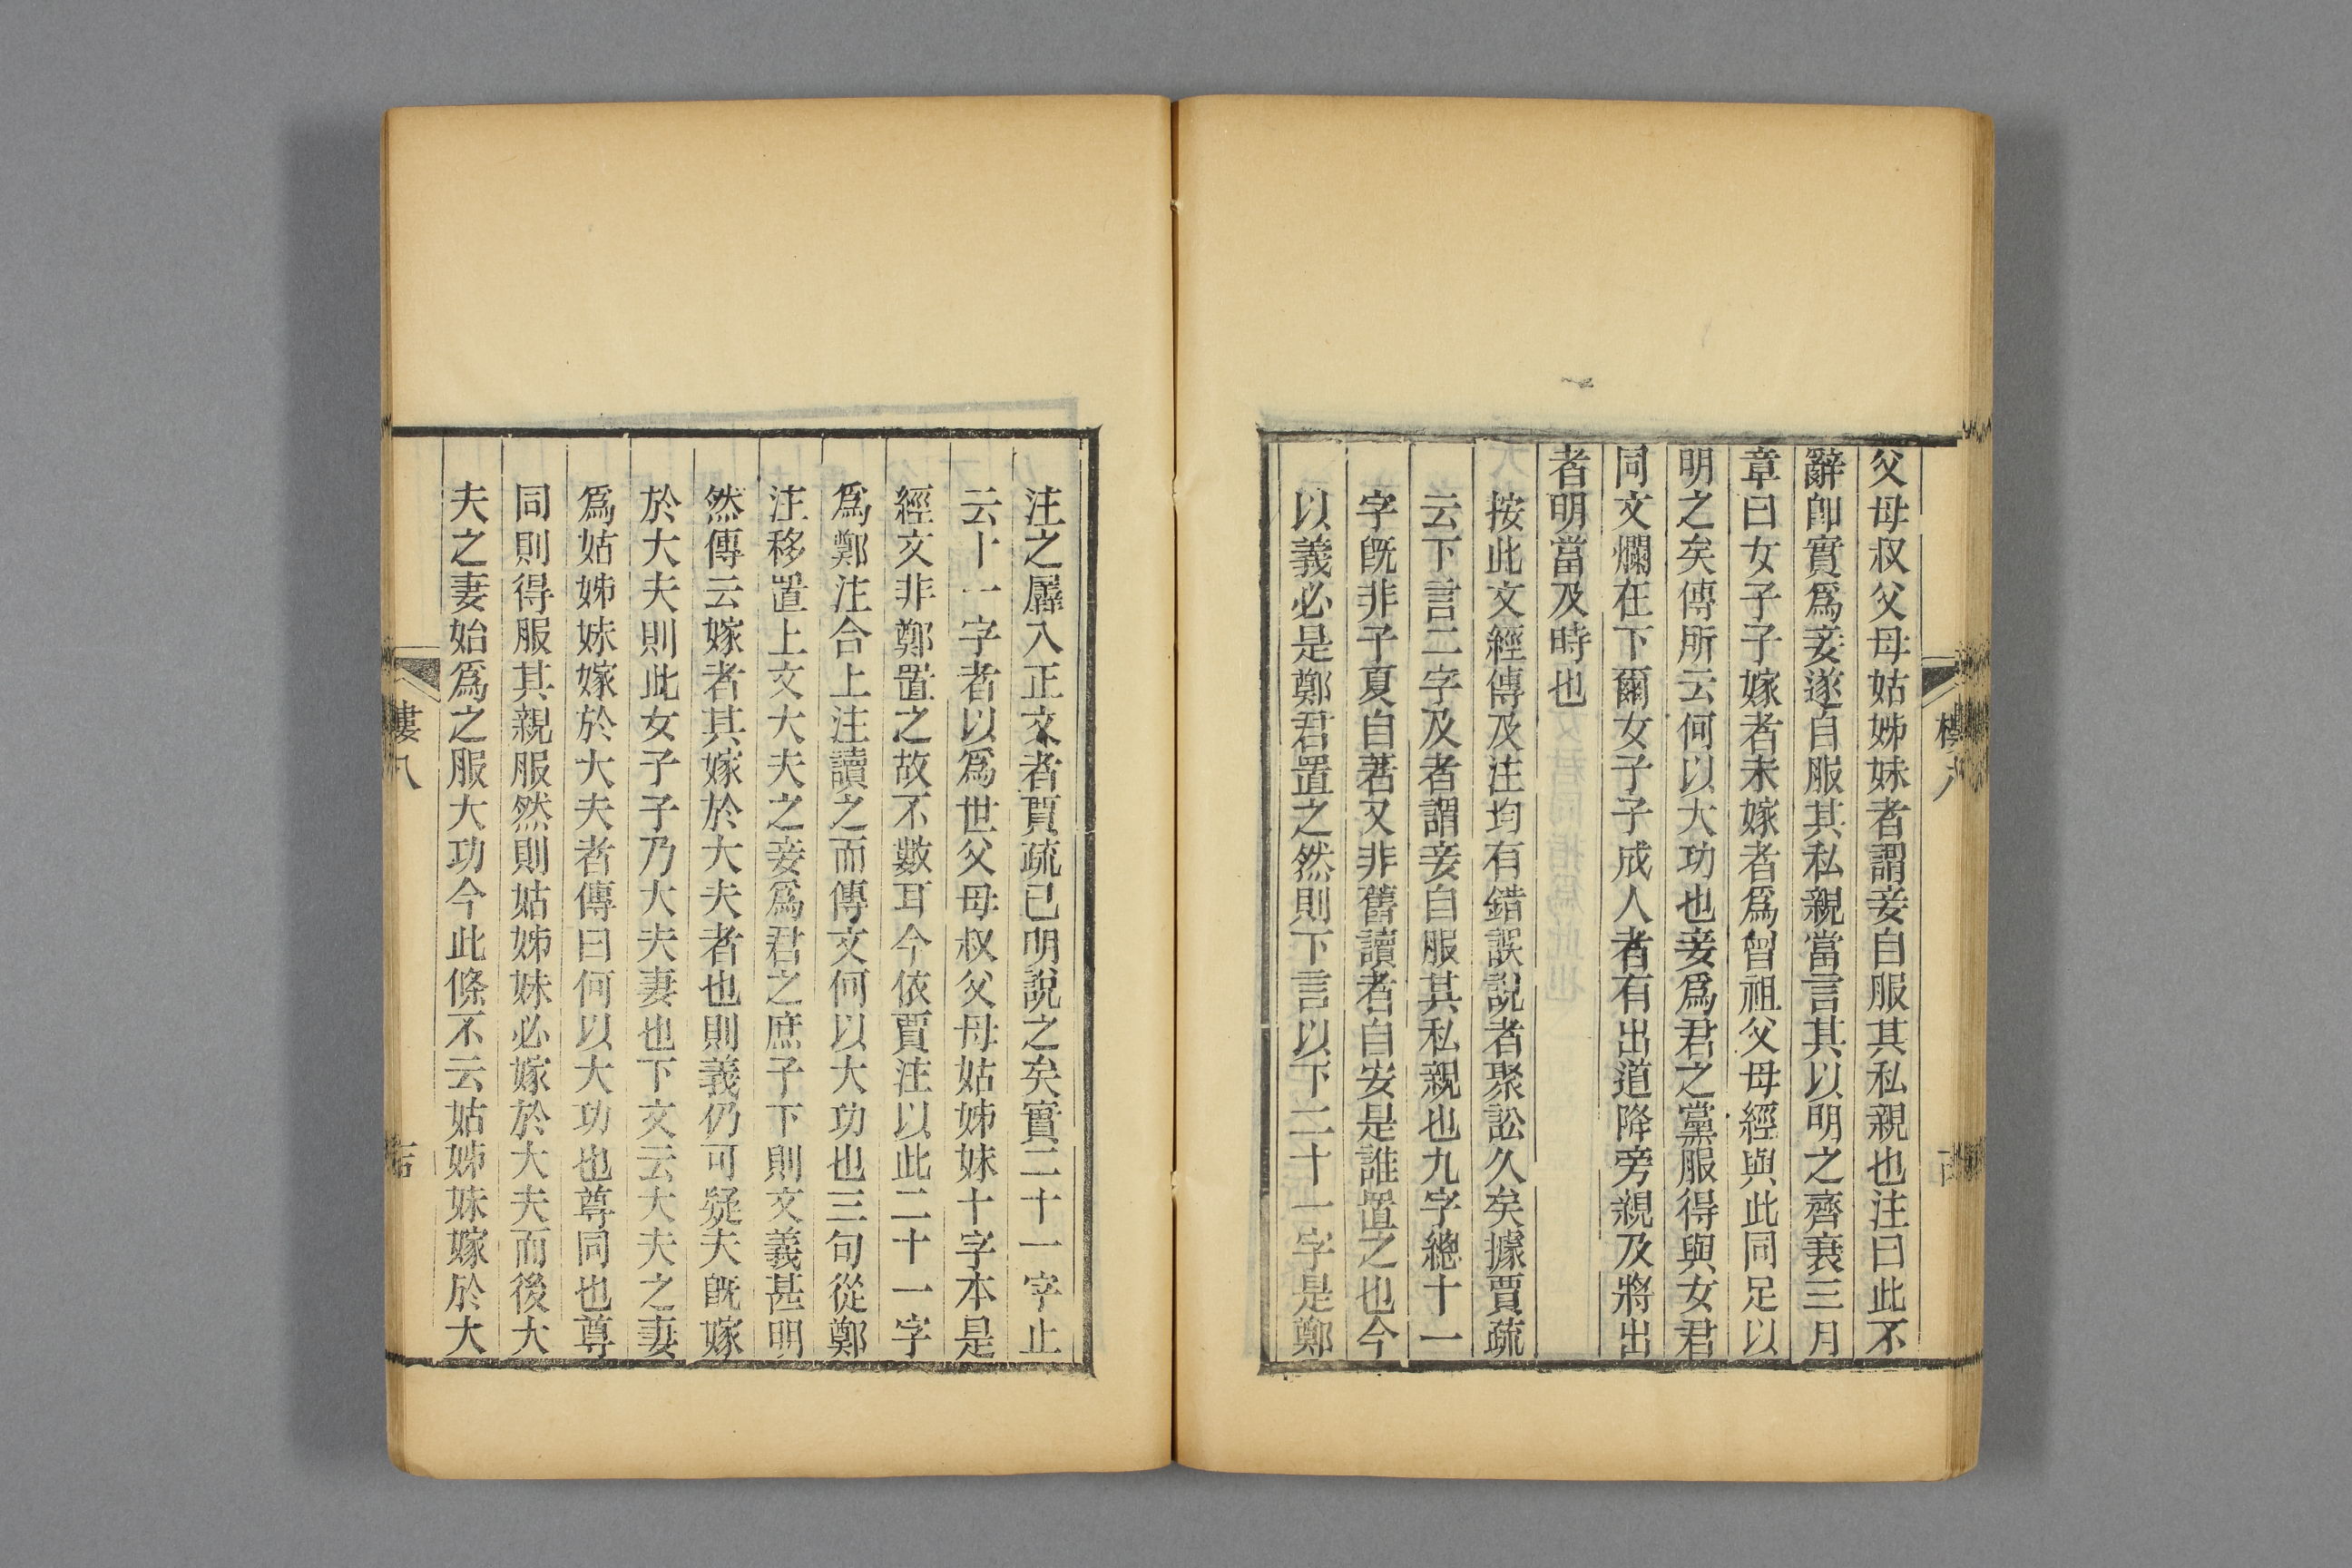 父母叔父母姑姊妹者謂妾自服其私親也注曰此不
辭卽實爲妾遂自服其私親當言其以明之齊衰三月
章曰女子子嫁者未嫁者爲曾祖父母經與此同足以
明之矣傳所云何以大功也妾爲君之黨服得與女君
同文爛在下爾女子子成人者有出道降旁親及將出
者明當及時也
按此文經傳及注均有錯誤說者聚訟久矣據賈疏
云下言二字及者謂妾自服其私親也九字總十一
字旣非子夏自著又非舊讀者自安是誰置之也今
以義必是鄭君置之然則下言以下二十一字是鄭
注之羼入正文者賈疏已明說之矣實二十一字止
云十一字者以爲世父母叔父母姑姊妹十字本是
經文非鄭置之故不數耳今依賈注以此二十一字
爲鄭注合上注讀之而傳文何以大功也三句從鄭
注移置上文大夫之妾爲君之庶子下則文義甚明
然傳云嫁者其嫁於大夫者也則義仍可疑夫旣嫁
於大夫則此女子子乃大夫妻也下文云大夫之妻
爲姑姊妹嫁於大夫者傳曰何以大功也尊同也尊
同則得服其親服然則姑姊妹必嫁於大夫而後大
夫之妻始爲之服大功今此條不云姑姊妹嫁於大